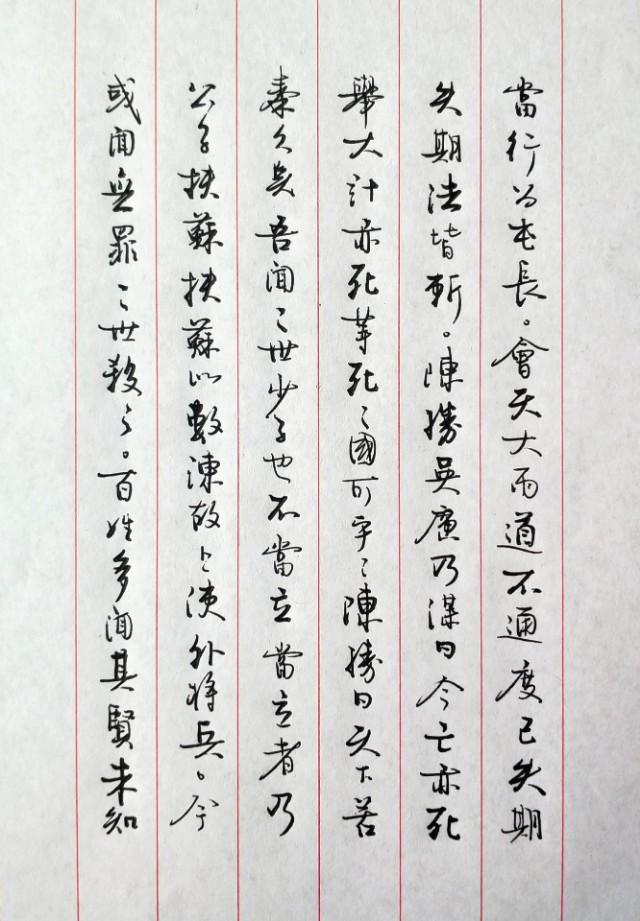 當行為屯長。會天大雨道不通度已失期
失期法皆斬。陳勝吳廣乃謀曰今亡亦死
舉大計亦死等死〻國可乎〻陳勝曰天下苦
秦久矣吾聞二世少子也不當立當立者乃
公子扶蘇扶蘇以數諫故上使外將兵。今
或聞無罪二世殺之。百姓多聞其賢未知